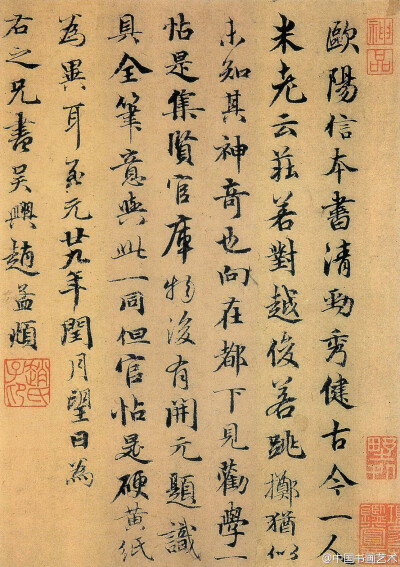 歐陽信本書清勁秀健古今一人
米老云莊若對越俊若跳擲猶似
未知其神奇也向在都下見勸學一
帖是集賢官庫物後有開元題識
具全筆意與此一同但官帖是硬黃紙
為異耳至元廿九年閏月望日為
右之兄書吳興趙孟頫
神品
@中国书画艺术